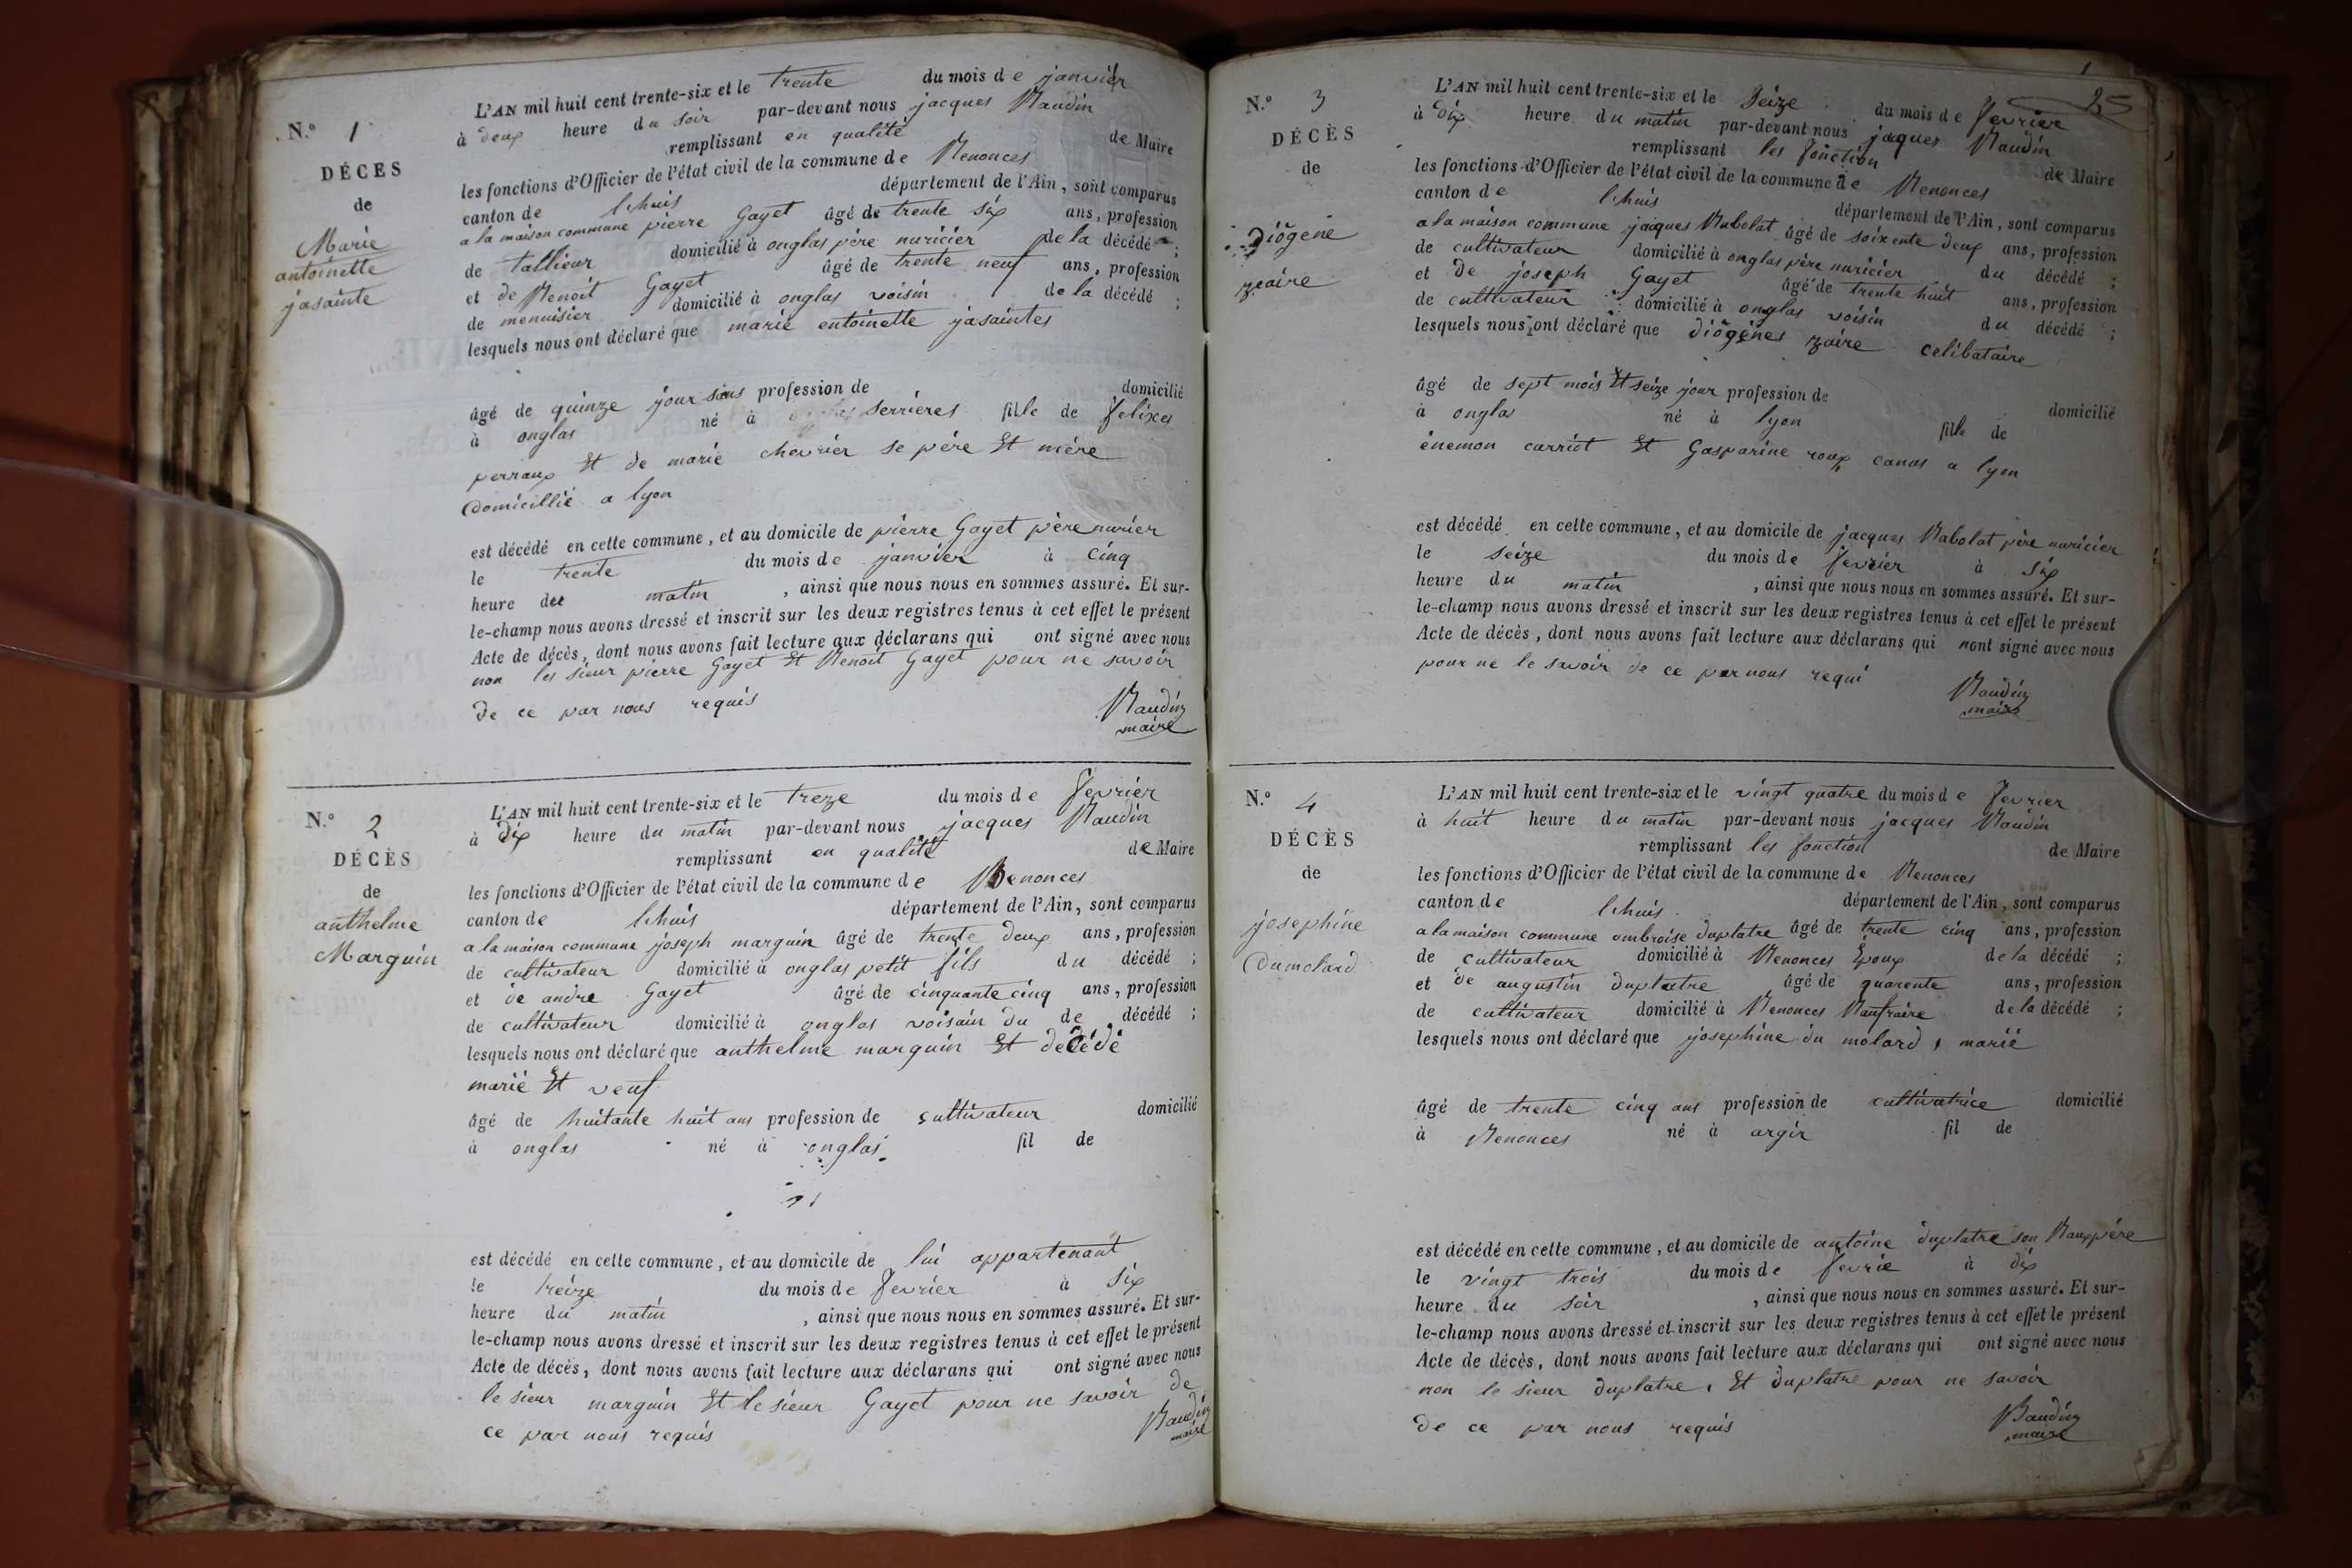 N.º 1
DÉCÈS
de
Marie
antoinette
jasainte
L'AN mil huit cent trente-six et le trente du mois de janvier
à deux heure du soir par-devant nous jacques Baudin
remplissant en qualité de Maire
les fonctions d'Officier de l'état civil de la commune de Benonces
canton de lhuis département de l'Ain, sont comparus
a la maison commune pierre Gayet âgé de trente six ans, profession
de tallieur domicilié à onglas père nuricier de la décédé ;
et de Benoit Gayet âgé de trente neuf ans, profession
de menuisier domicilié à onglas voisin de la décédé ;
lesquels nous ont déclaré que marie entoinette jasaintes
âgé de quinze jour sans profession de domicilié
à onglas né à serrieres fille de felixes
perraux et de marie chevrier se père et mère
domicillié a lyon
est décédé en cette commune, et au domicile de pierre Gayet père nurier
le trente du mois de janvier à cinq
heure du matin , ainsi que nous nous en sommes assuré. Et sur-
le-champ nous avons dressé et inscrit sur les deux registres tenus à cet effet le présent
Acte de décès, dont nous avons fait lecture aux déclarans qui ont signé avec nous
non les sieur pierre Gayet et Benoit Gayet pour ne savoir
de ce par nous requis
Baudin
maire
N.º 2
DÉCÈS
de
anthelme
Marguin
L'AN mil huit cent trente-six et le treze du mois de fevrier
à dix heure du matin par-devant nous jacques Baudin
remplissant en qualité de Maire
les fonctions d'Officier de l'état civil de la commune de Benonces
canton de lhuis département de l'Ain, sont comparus
a la maison commune joseph marguin âgé de trente deux ans, profession
de cultivateur domicilié à onglas petit fils du décédé ;
et de andre Gayet âgé de cinquante cinq ans, profession
de cultivateur domicilié à onglas voisain du de décédé ;
lesquels nous ont déclaré que anthelme marguin et dédédé
marié et veuf
âgé de huitante huit ans profession de cultivateur domicilié
à onglas né à onglas fil de
est décédé en cette commune, et au domicile de lui appartenant
le treize du mois de fevrier à six
heure du matin , ainsi que nous nous en sommes assuré. Et sur-
le-champ nous avons dressé et inscrit sur les deux registres tenus à cet effet le présent
Acte de décès, dont nous avons fait lecture aux déclarans qui ont signé avec nous
le sieur marguin et le sieur Gayet pour ne savoir de
ce par nous requis
Baudin
maire
25
N.º 3
DÉCÈS
de
diogene
zaire
L'AN mil huit cent trente-six et le seize du mois de fevrier
à dix heure du matin par-devant nous jacques Baudin
remplissant les fonction de Maire
les fonctions d'Officier de l'état civil de la commune de Benonces
canton de lhuis département de l'Ain, sont comparus
a la maison commune jacques Babolat âgé de soixente deux ans, profession
de cultivateur domicilié à onglas père nuricier du décédé ;
et de joseph Gayet âgé de trente huit ans, profession
de cultivateur domicilié à onglas voisin du décédé ;
lesquels nous ont déclaré que diogènes zaire celibataire
âgé de sept mois et seize jour profession de domicilié
à onglas né à lyon fille de
énemon carriot et Gasparine roux canus a lyon
est décédé en cette commune, et au domicile de jacques Babolat père nuricier
le seize du mois de fevrier à six
heure du matin , ainsi que nous nous en sommes assuré. Et sur-
le-champ nous avons dressé et inscrit sur les deux registres tenus à cet effet le présent
Acte de décès, dont nous avons fait lecture aux déclarans qui nont signé avec nous
pour ne le savoir de ce par nous requi
Baudin
maire
N.º 4
DÉCÈS
de
josephine
Dumolard
L'AN mil huit cent trente-six et le vingt quatre du mois de fevrier
à huit heure du matin par-devant nous jacques Baudin
remplissant les fonction de Maire
les fonctions d'Officier de l'état civil de la commune de Benonces
canton de lhuis département de l'Ain, sont comparus
a la maison commune ambroise duplatre âgé de trente cinq ans, profession
de cultivateur domicilié à Benonces Epoux de la décédé ;
et de augustin duplatre âgé de quarente ans, profession
de cultivateur domicilié à Benonces Baufraire de la décédé ;
lesquels nous ont déclaré que josephine du molard, marié
âgé de trente cinq ans profession de cultivatrice domicilié
à Benonces né à argir fil de
est décédé en cette commune, et au domicile de antoine duplatre son Bauxpére
le vingt trois du mois de fevrié à dix
heure du soir , ainsi que nous nous en sommes assuré. Et sur-
le-champ nous avons dressé et inscrit sur les deux registres tenus à cet effet le présent
Acte de décès, dont nous avons fait lecture aux déclarans qui ont signé avec nous
non le sieur duplatre, et duplatre pour ne savoir
de ce par nous requis
Baudin
maire